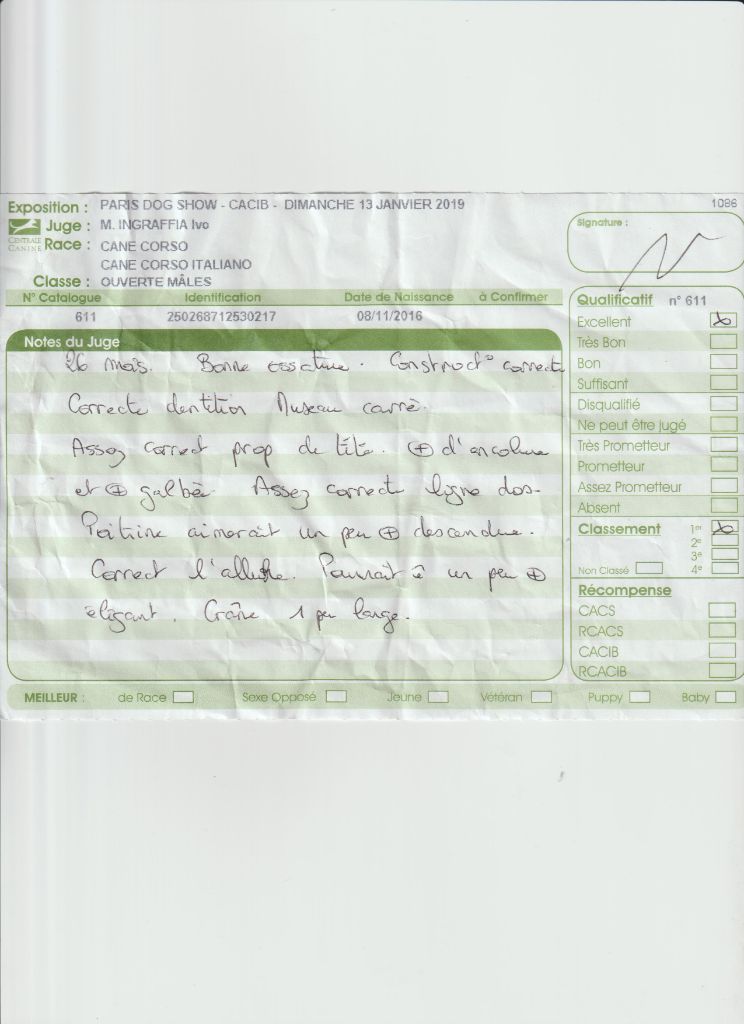 Exposition : PARIS DOG SHOW - CACIB - DIMANCHE 13 JANVIER 2019 1086
Juge : M. INGRAFFIA Ivo
CENTRALE CANINE
Race : CANE CORSO
CANE CORSO ITALIANO
Classe : OUVERTE MÂLES
Signature :
N° Catalogue Identification Date de Naissance à Confirmer
611 250268712530217 08/11/2016
Notes du Juge
26 mois. Bonne ossature. Construct° correcte
Correcte dentition Museau carré.
Assez correct prop de tête. ⊕ d'encolure
et ⊕ galbée Assez correcte ligne dos.
Poitrine aimerait un peu ⊕ descendue.
Correct l'allure. Pourrait ê un peu ⊕
élégant. Crâne 1 peu large.
Qualificatif n° 611
Excellent X
Très Bon
Bon
Suffisant
Disqualifié
Ne peut être jugé
Très Prometteur
Prometteur
Assez Prometteur
Absent
Classement 1er X
2e
3e
Non Classé 4e
Récompense
CACS
RCACS
CACIB
RCACIB
MEILLEUR : de Race Sexe Opposé Jeune Vétéran Puppy Baby